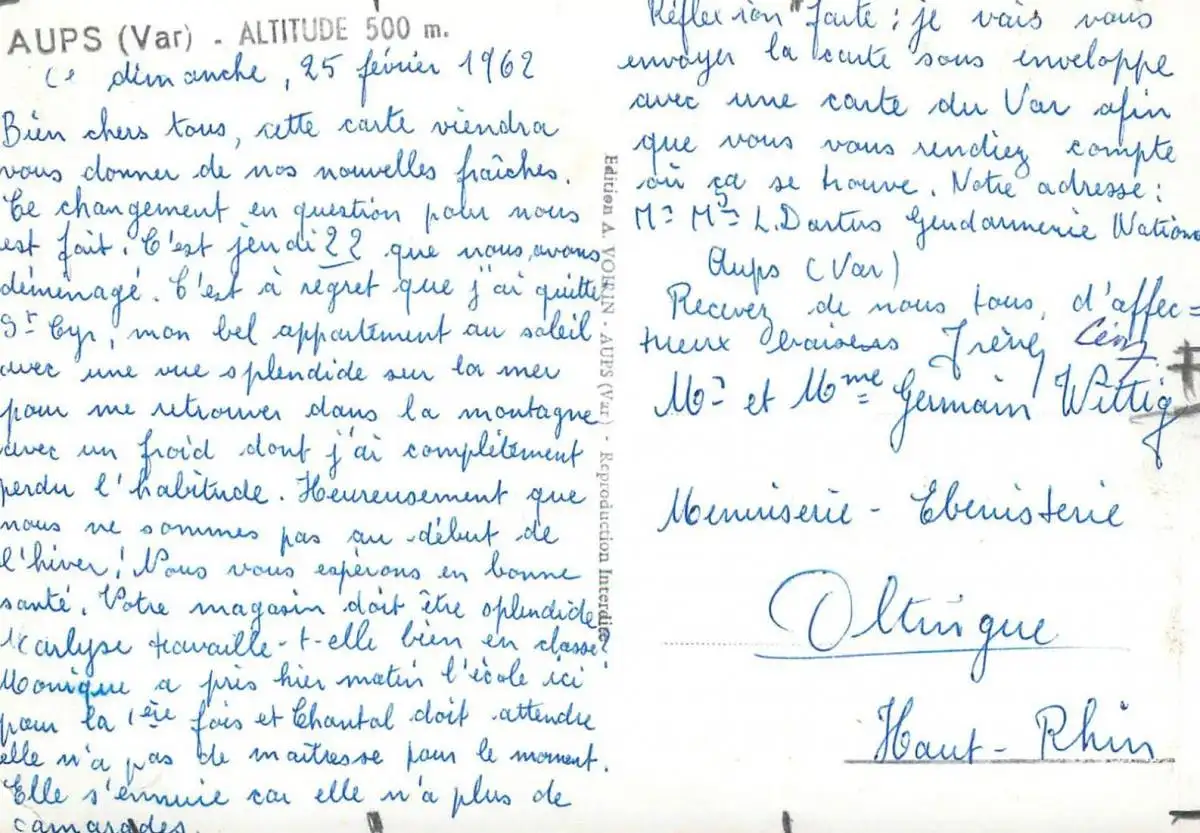 AUPS (Var) - ALTITUDE 500 m.
Ce dimanche, 25 février 1962
Bien chers tous, cette carte viendra
vous donner de nos nouvelles fraîches.
Ce changement en question pour nous
est fait. C'est jeudi 22 que nous avons
déménagé. C'est à regret que j'ai quitté
St Cyr, mon bel appartement au soleil
avec une vue splendide sur la mer
pour me retrouver dans la montagne
avec un froid dont j'ai complètement
perdu l'habitude. Heureusement que
nous ne sommes pas au début de
l'hiver! Nous vous espérons en bonne
santé. Votre magasin doit être splendide
Marlyse travaille-t-elle bien en classe?
Monique a pris hier matin l'école ici
pour la 1ère fois et Chantal doit attendre
elle n'a pas de maîtresse pour le moment.
Elle s'ennuie car elle n'a plus de
camarades.
Edition A. VOIRIN - AUPS (Var) - Reproduction Interdite
Réflexion faite : je vais vous
envoyer la carte sous enveloppe
avec une carte du Var afin
que vous vous rendiez compte
où ça se trouve. Notre adresse :
Mr Mme L. Dartus Gendarmerie Nationa
Aups (Var)
Recevez de nous tous, d'affec=
tueux baisers Irène
Mr et Mme Germain Wittig
Menuiserie - Ebenisterie
Oltingue
Haut-Rhin